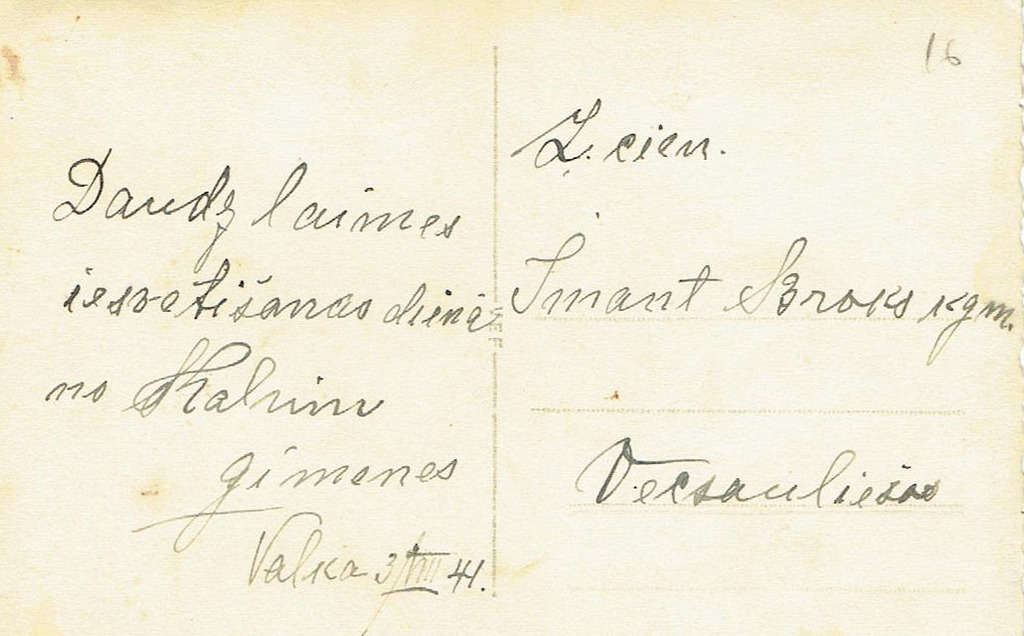 Daudz laimes
iesvetišanas dienā
no Kalniņ
gimenes
Valka 3/VIII 41.
16
Z. cien.
Imant Broks kgm.
Vecsauliešos